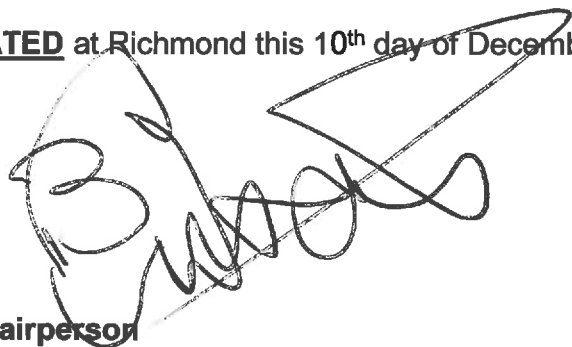 ATED at Richmond this 10th day of Decemb
airperson